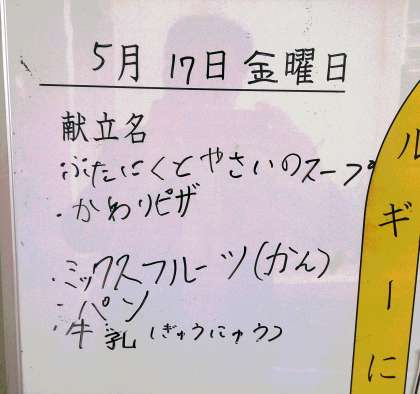 5月 17日 金曜日
献立名
ぶたにくとやさいのスープ
・かわりピザ
・ミックスフルーツ(かん)
・パン
・牛乳(ぎゅうにゅう)
ルギーに